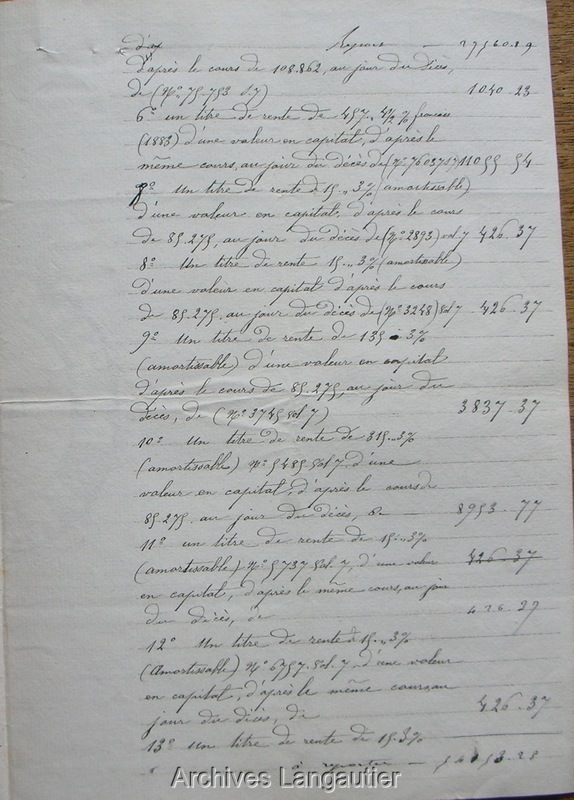 Report — 29560.89
d'après le cours de 108.862, au jour du décès,
de (N° 75.753 S.7) 1040-23
6° un titre de rente de 457,, 4½% français
(1883) d'une valeur en capital, d'après le
même cours, au jour du décès de 11055 54
7° Un titre de rente 15,, 3% (amortissable)
d'une valeur en capital, d'après le cours
de 85.275, au jour du décès de (N° 2893) vol. 7 426-37
8° Un titre de rente 15,, 3% (amortissable)
d'une valeur en capital d'après le cours
de 85.275 au jour du décès de (N° 3248) vol 7 426-37
9° Un titre de rente de 135 3%
(amortissable) d'une valeur en capital
d'après le cours de 85.275, au jour du
décès, de (N° 3745 vol 7) 3837-37
10° Un titre de rente de 315,, 3%
(amortissable) N° 5485 vol 7. d'une
valeur en capital, d'après le cours de
85.275. au jour du décès, de — 8953-77
11° un titre de rente de 15,, 3%
(amortissable) N° 5737 vol. 7, d'une valeur 426-37
en capital, d'après le même cours, au jour
du décès, de 426.37
12° Un titre de rente 15,, 3%
(Amortissable) N° 6757. vol. 7. d'une valeur
en capital, d'après le même cours au
jour du décès, de 426-37
13° un titre de rente de 15. 3%
à reporter —
Archives Langautier